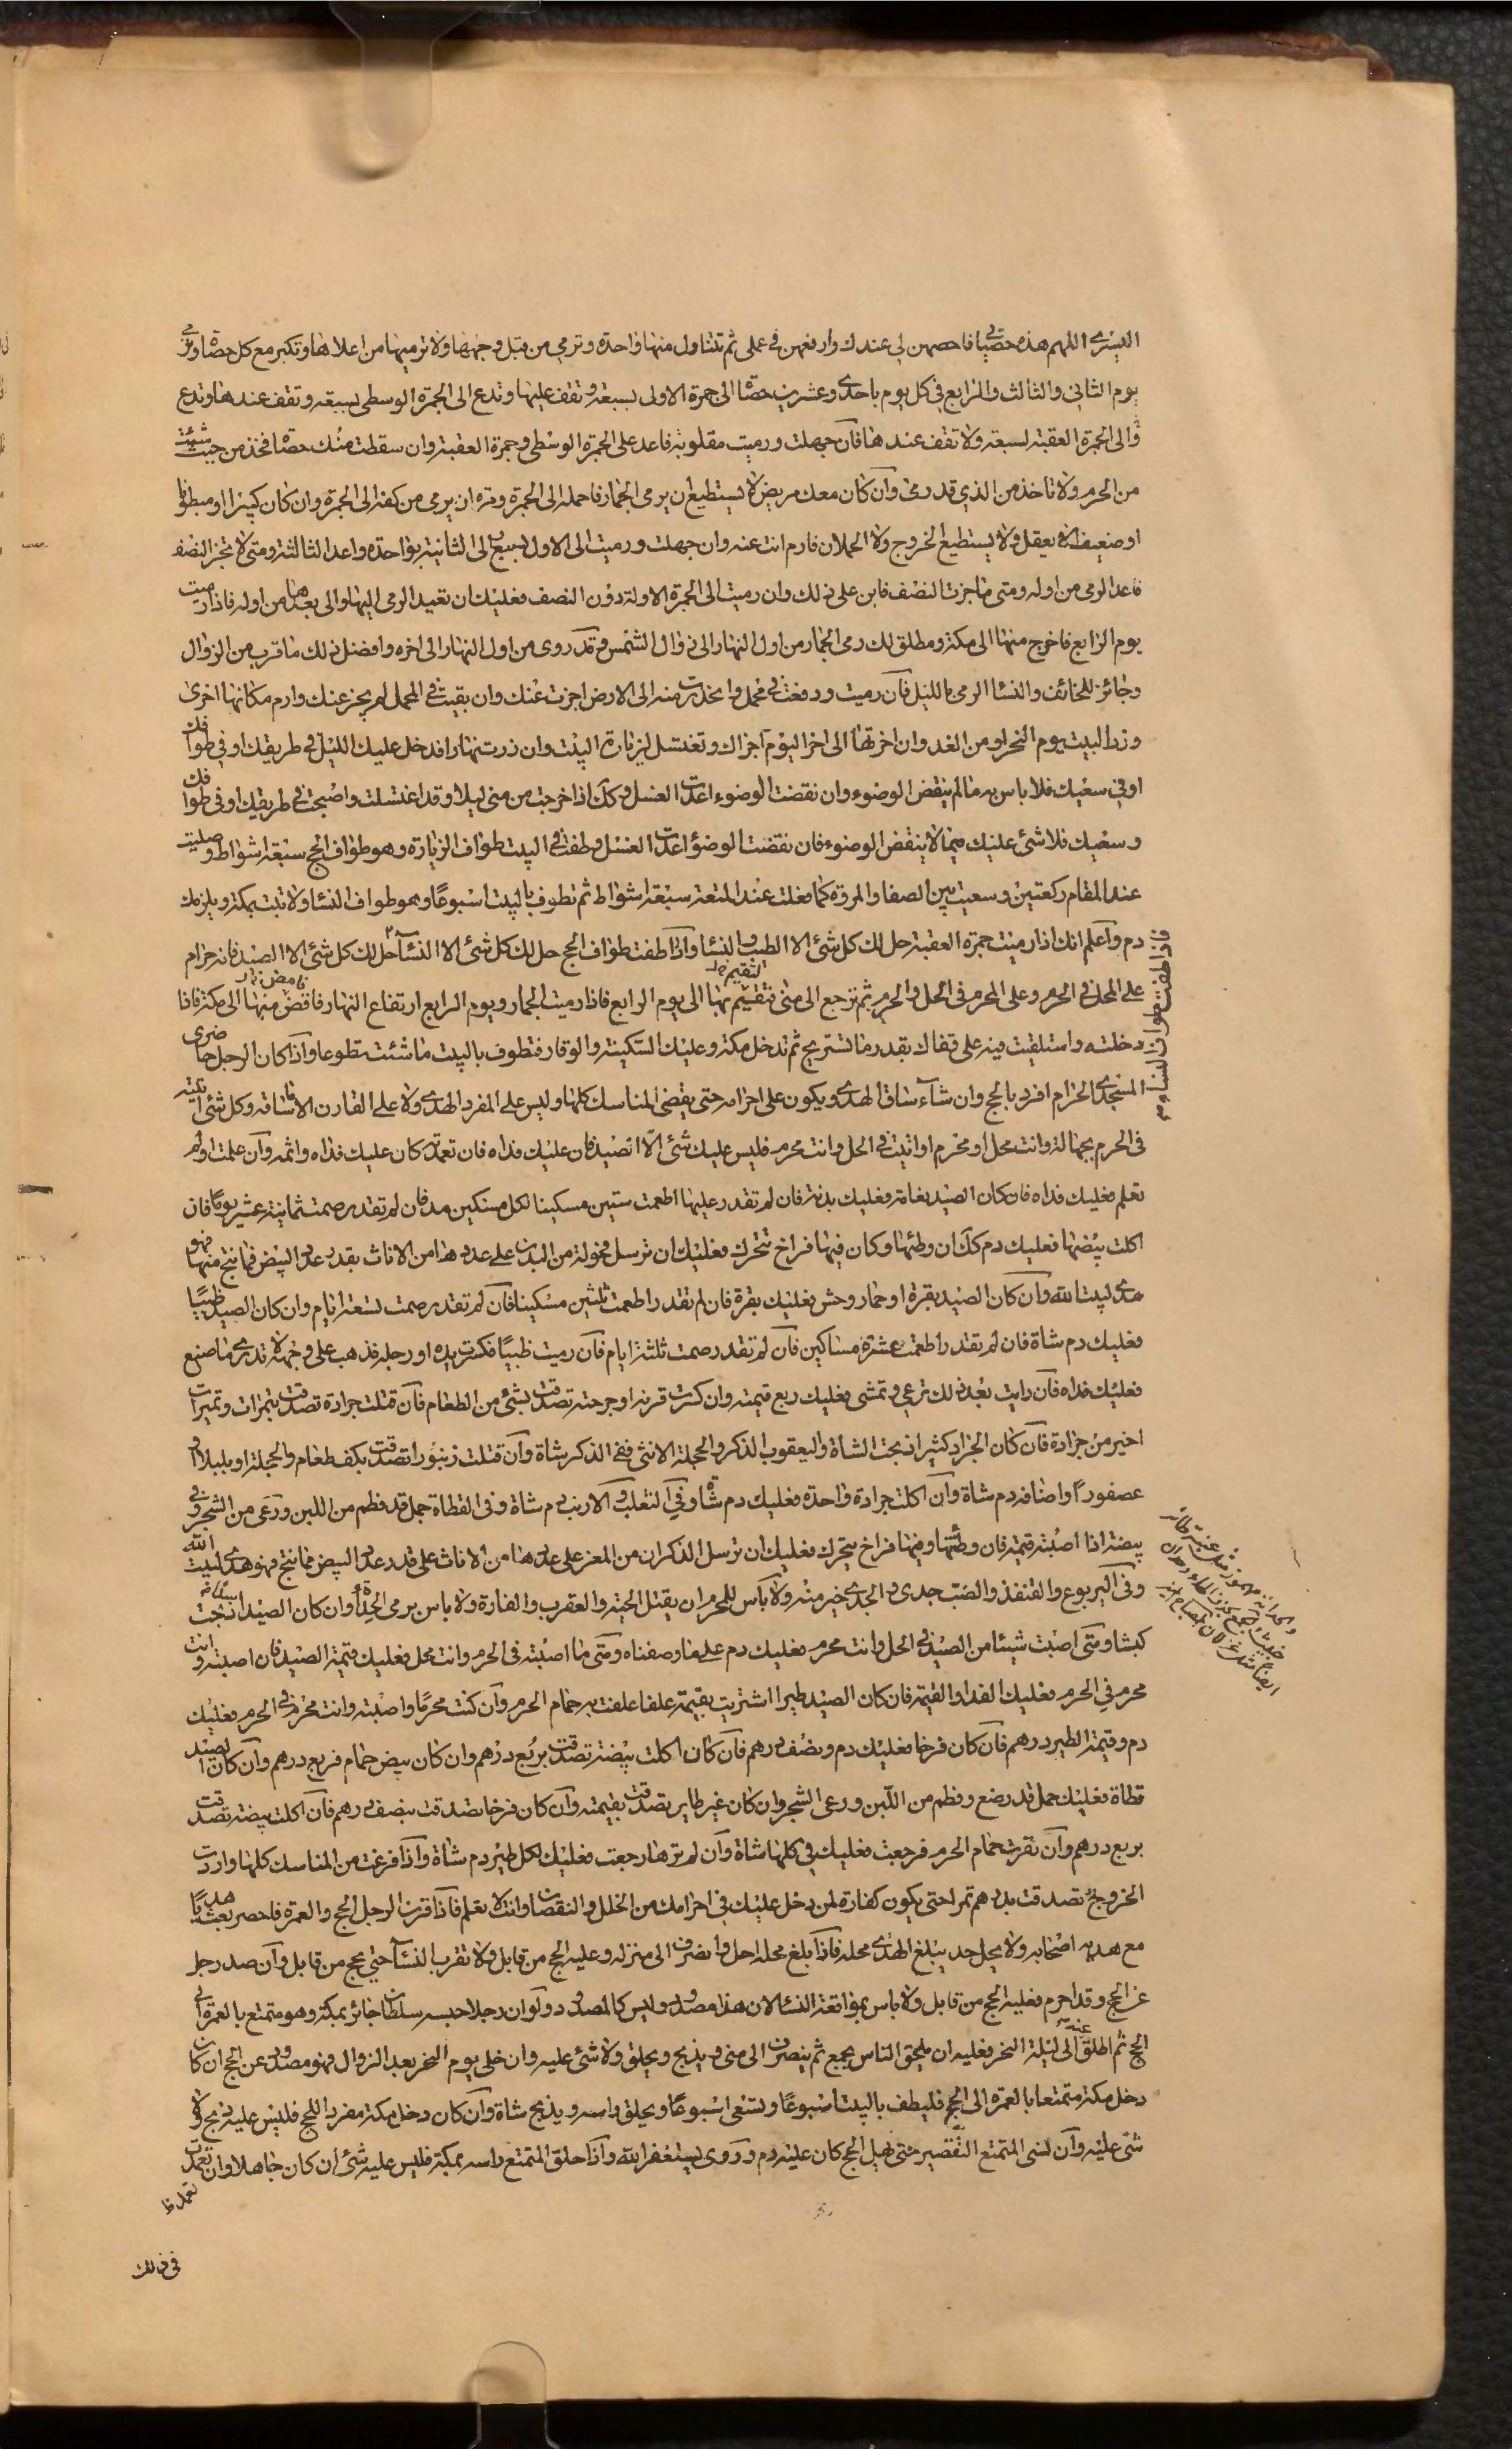 اليسرى اللهم هذه حصياتي فاحصهن لي عندك وارفعهن في عملي ثم تتناول منها واحدة وترمي من قبل وجهها ولا ترميها من اعلاها وتكبر مع كل حصاة وترمي
يوم الثاني والثالث والرابع في كل يوم باحدى وعشرين حصاة الى جمرة الاولى بسبعة وتقف عليها وتدع الى الجمرة الوسطى بسبعة وتقف عندها وتدع
والى الجمرة العقبة بسبعة ولا تقف عندها فان جهلت ورميت مقلوبة فاعد على الجمرة الوسطى وجمرة العقبة وان سقطت منك حصاة فخذ من حيث شئت
من الحرم ولا تاخذ من الذي قد رمى وان كان معك مريض لا يستطيع ان يرمى الجمار فاحمله الى الجمرة ومره ان يرمى من كفه الى الجمرة وان كان كسيرا او مبطونا
او ضعيفا لا يعقل ولا يستطيع الخروج ولا الحملان فارم انت عنه وان جهلت ورميت الى الاولى بسبع والى الثانية بواحدة واعد الثالثة ومتى لا تجز النصف
فاعد الرمى من اوله ومتى ما جزت النصف فابن على ذلك وان رميت الى الجمرة الاولة دون النصف فعليك ان تعيد الرمى اليها والى بعدها من اوله فاذا رميت
يوم الرابع فاخرج منها الى مكة ومطلق لك رمى الجمار من اول النهار الى زوال الشمس وقد روى من اول النهار الى اخره وافضل ذلك ما قرب من الزوال
وجائز للخائف والنسا الرمى بالليل فان رميت ودفعت في محمل وانحدرت منه الى الارض اجزت عنك وان بقيت في المحمل لم يجز عنك وارم مكانها اخرى
وزر البيت يوم النحر او من الغد وان اخرتها الى اخر اليوم اجزاك وتغتسل لزيارة البيت وان زرت نهارا فدخل عليك الليل في طريقك او في طوافك
او في سعيك فلا باس به ما لم ينقض الوضوء وان نقضت الوضوء اعدت الغسل وكك اذا خرجت من منى ليلا وقد اغتسلت واصبحت في طريقك او في طوافك
وسعيك فلا شئ عليك فيما لا ينقض الوضوء فان نقضت الوضوء اعدت الغسل وطفت في البيت طواف الزيارة وهو طواف الحج سبعة اشواط وصليت
عند المقام ركعتين وسعيت بين الصفا والمروة كما فعلت عند المتعة سبعة اشواط ثم تطوف بالبيت اسبوعا وهو طواف النسا ولا تبت بمكة ويلزمك
دم واعلم انك اذا رميت جمرة العقبة حل لك كل شئ الا الطيب والنسا واذا طفت طواف الحج حل لك كل شئ الا النسآ حل لك كل شئ الا الصيد فانه حرام
فاذا طفت طواف النساء
على المحل في الحرم وعلى المحرم في الحل والحرم ثم ترجع الى منى فتقيم بها الى يوم الرابع فاذا رميت الجمار ويوم الرابع ارتفاع النهار فاقض منها الى مكة فاذا
دخلته واستلقيت فيه على قفاك بقدر ما تستريح ثم تدخل مكة وعليك السكينة والوقار فتطوف بالبيت ما شئت تطوعا واذا كان الرجل حاضرى
المسجد الحرام افرد بالحج وان شآء ساق الهدى ويكون على احرامه حتى يقضى المناسك كلها وليس على المفرد الهدى ولا على القارن الا ما ساقه وكل شئ اتيته
في الحرم بجهالة وانت محل او محرم او اتيت في الحل وانت محرم فليس عليك شئ الا الصيد فان عليك فداه فان تعمدته كان عليك فداه واثمه وان علمت او لم
تعلم فعليك فداه فان كان الصيد نعامة فعليك بدنة فان لم تقدر عليها اطعمت ستين مسكينا لكل مسكين مد فان لم تقدر صمت ثمانية عشر يوما فان
اكلت بيضها فعليك دم كك ان وطئها وكان فيها فراخ تتحرك فعليك ان ترسل فحولة من البدن على عددها من الاناث بقدر عدد البيض فما نتج منها فهو
هدى لبيت الله وان كان الصيد بقرة او حمار وحش فعليك بقرة فان لم تقدر اطعمت ثلثين مسكينا فان لم تقدر صمت تسعة ايام وان كان الصيد ظبيا
فعليك دم شاة فان لم تقدر اطعمت عشرة مساكين فان لم تقدر صمت ثلثة ايام فان رميت ظبيا فكسرت يده او رجله فذهب على وجهه لا تدرى ما صنع
فعليك فداه فان رايت بعد ذلك ترعى وتمشى فعليك ربع قيمته وان كسرت قرنه او جرحته تصدقت بشئ من الطعام فان قتلت جرادة تصدقت بتمرات وتمرات
اخير من جرادة فان كان الجراد كثيرا ذبحت الشاة واليعقوب الذكر والحجلة الانثى ففي الذكر شاة وان قتلت زنبورا تصدقت بكف طعام والحجلة او بلبلا او
عصفورا واصنافه دم شاة وان اكلت جرادة واحدة فعليك دم شاة وفي الثعلب والارنب دم شاة وفي القطاة حمل قد فطم من اللبن ورعى من الشجر وفي
بيضة اذا اصبته قيمة فان وطئتها وفيها فراخ يتحرك فعليك ان ترسل الذكران من المعز على عددها من الاناث على قدر عدد البيض فما نتج فهو هدى لبيت الله
وفي اليربوع والقنفذ والضب جدى والجدى خير منه ولا باس للمحرم ان يقتل الحية والعقرب والفارة ولا باس برمى الحدأة وان كان الصيد اسدا ذبحت
كبشا ومتى اصبت شيئا من الصيد في الحل وانت محرم فعليك دم على ما وصفناه ومتى ما اصبته في الحرم وانت محل فعليك قيمة الصيد فان اصبته وانت
محرم في الحرم فعليك الفدا والقيمة فان كان الصيد طيرا اشتريت بقيمته علفا علفت به حمام الحرم وان كنت محرما واصبته وانت محرم في الحرم فعليك
دم وقيمة الطير درهم فان كان فرخا فعليك دم ونصف درهم فان كان اكلت بيضة تصدقت بربع درهم وان كان بيض حمام فربع درهم وان كان الصيد
قطاة فعليك حمل قد رضع وفطم من اللبن ورعى الشجر وان كان غير طاير تصدقت بقيمته وان كان فرخا تصدقت بنصف درهم فان اكلت بيضة تصدقت
بربع درهم وان نفرت حمام الحرم فرجعت فعليك في كلها شاة وان لم ترها رجعت فعليك لكل طير دم شاة واذا فرغت من المناسك كلها واردت
الخروج تصدقت بدرهم تمرا حتى يكون كفارة لمن دخل عليك في احرامك من الخلل والنقصان وانت لا تعلم فاذا قرن الرجل الحج والعمرة فاحصر بعث هديا
مع هديه اصحابه ولا يحل حتى يبلغ الهدى محله فاذا بلغ محله احل وانصرف الى منزله وعليه الحج من قابل ولا تقرب النسآ حتى يحج من قابل وان صد رجل
عن الحج وقد احرم فعليه الحج من قابل ولا باس بمواقعة النسا لان هذا مصدود وليس كالمصدود ولو ان رجلا حبسه سلطان جائر بمكة وهو متمتع بالعمرة الى
الحج ثم اطلق عنه الى ليلة النحر فعليه ان يلحق الناس بجمع ثم ينصرف الى منى ويذبح ويحلق ولا شئ عليه وان خلى يوم النحر بعد الزوال فهو مصدود عن الحج ان كان
دخل مكة متمتعا بالعمرة الى الحج فليطف بالبيت اسبوعا ويسعى اسبوعا ويحلق راسه ويذبح شاة وان كان دخل مكة مفردا للحج فليس عليه ذبح ولا
شئ عليه وان نسى المتمتع التقصير حتى يهل الحج كان عليه دم وروى يستغفر الله واذا حلق المتمتع راسه بمكة فليس عليه شئ ان كان جاهلا وان تعمد
في ذلك